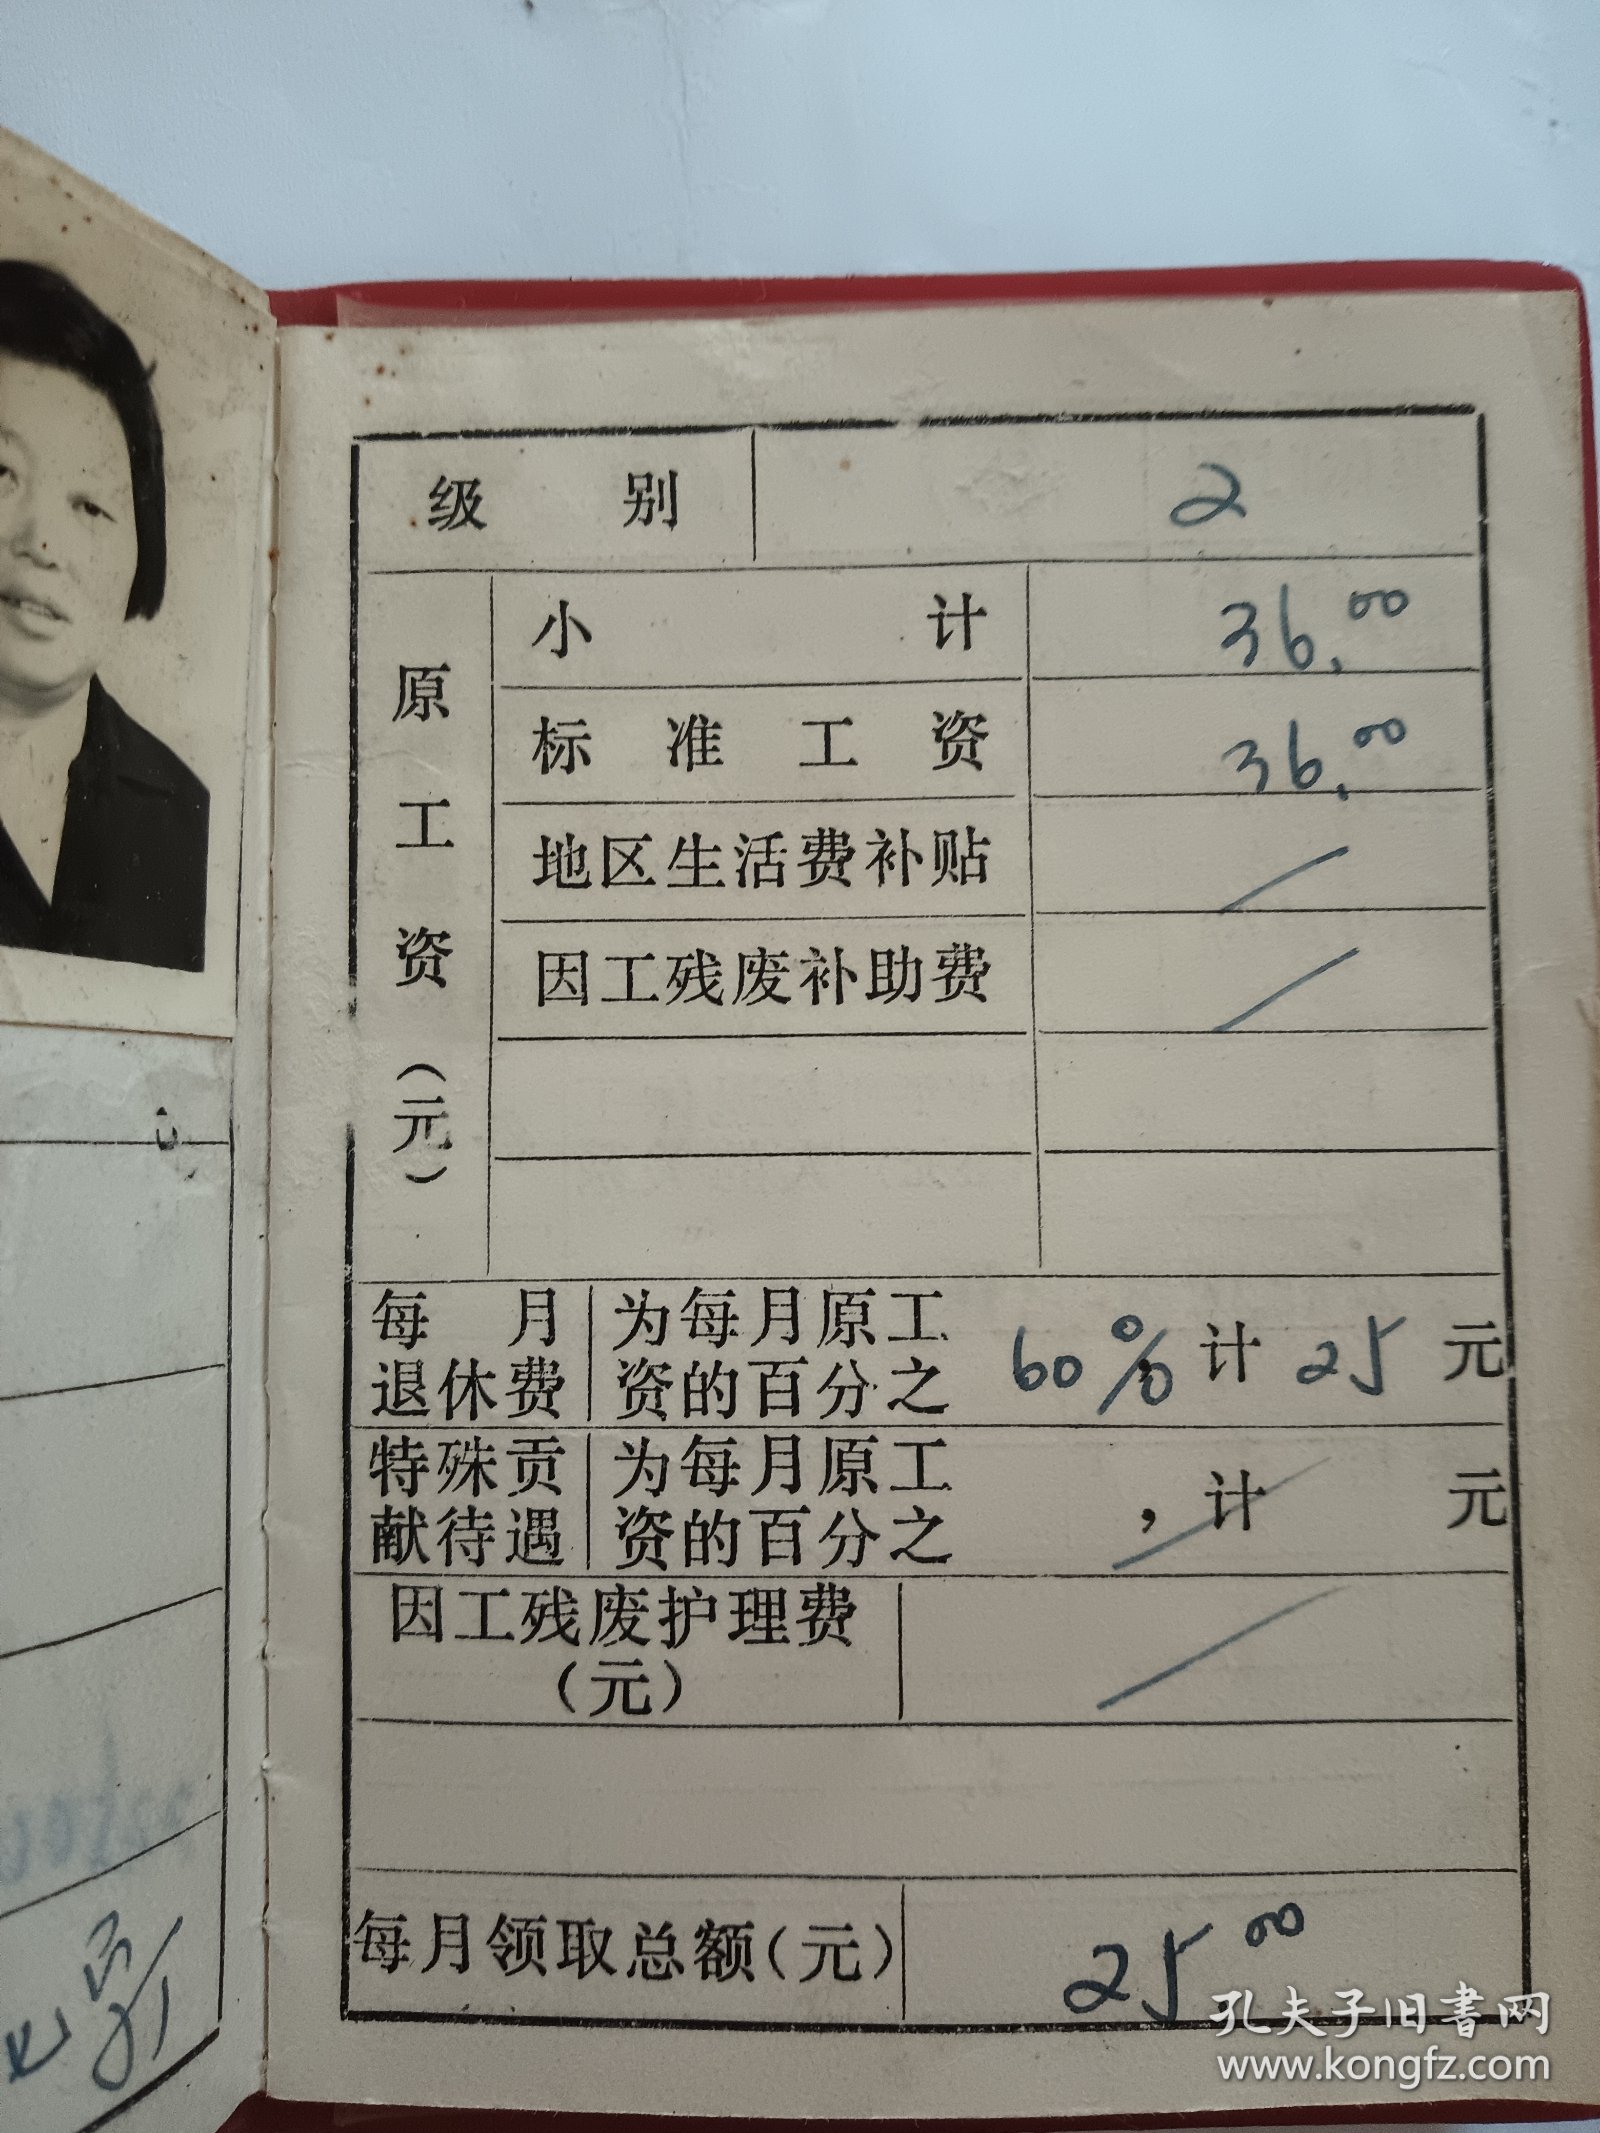 级 别 2
原工资(元)
小 计 36.00
标准工资 36.00
地区生活费补贴
因工残废补助费
每月退休费 为每月原工资的百分之 60% 计 25 元
特殊贡献待遇 为每月原工资的百分之 ，计 元
因工残废护理费
(元)
每月领取总额(元) 25 00
孔夫子旧書网
www.kongfz.com